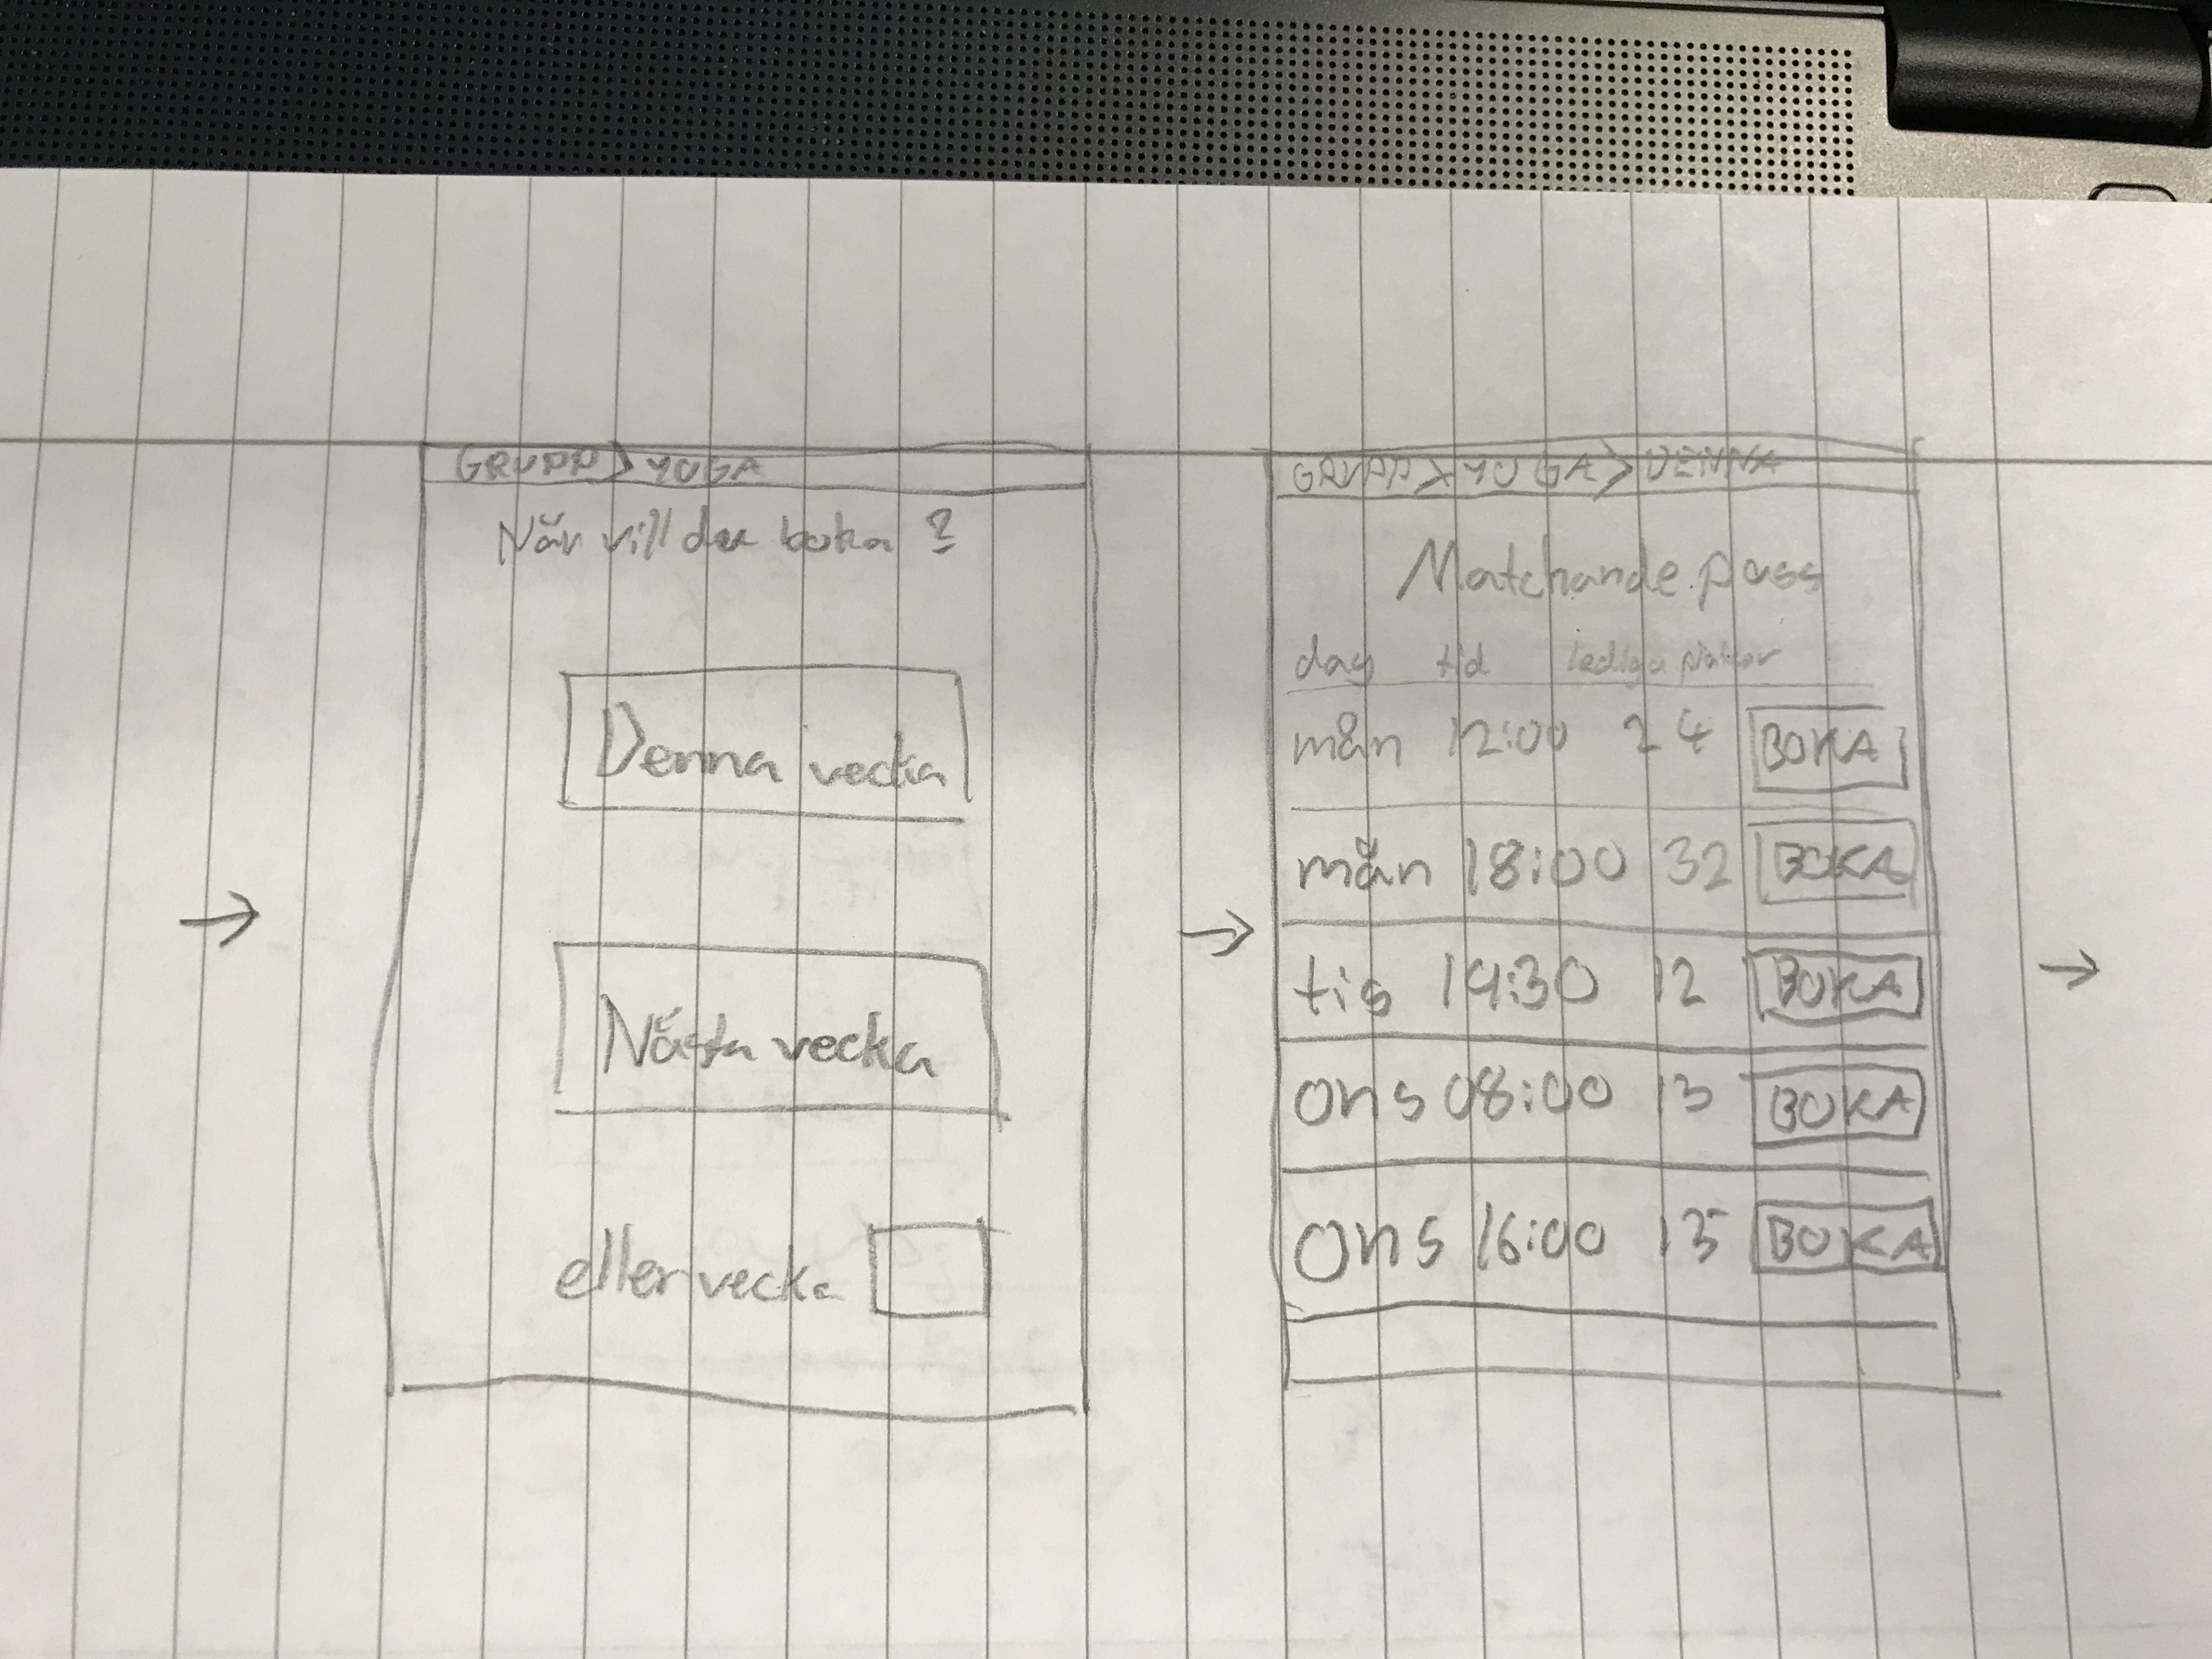 GRUPP > YOGA
När vill du boka?
Denna vecka
Nästa vecka
eller vecka
GRUPP > YOGA > DENNA
Matchande pass
dag tid lediga platser
mån 12:00 24 BOKA
mån 18:00 32 BOKA
tis 14:30 12 BOKA
Ons 08:00 13 BOKA
Ons 16:00 13 BOKA